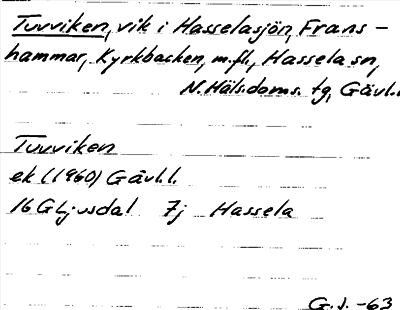 Tuvviken, vik i Hasselasjön, Frans-
hammar, Kyrkbacken, m.fl., Hassela sn,
N. Häls. doms. tg, Gävl.l.
Tuvviken
ek (1960) Gävl.l.
16G Ljusdal 7j Hassela
G.J. -63